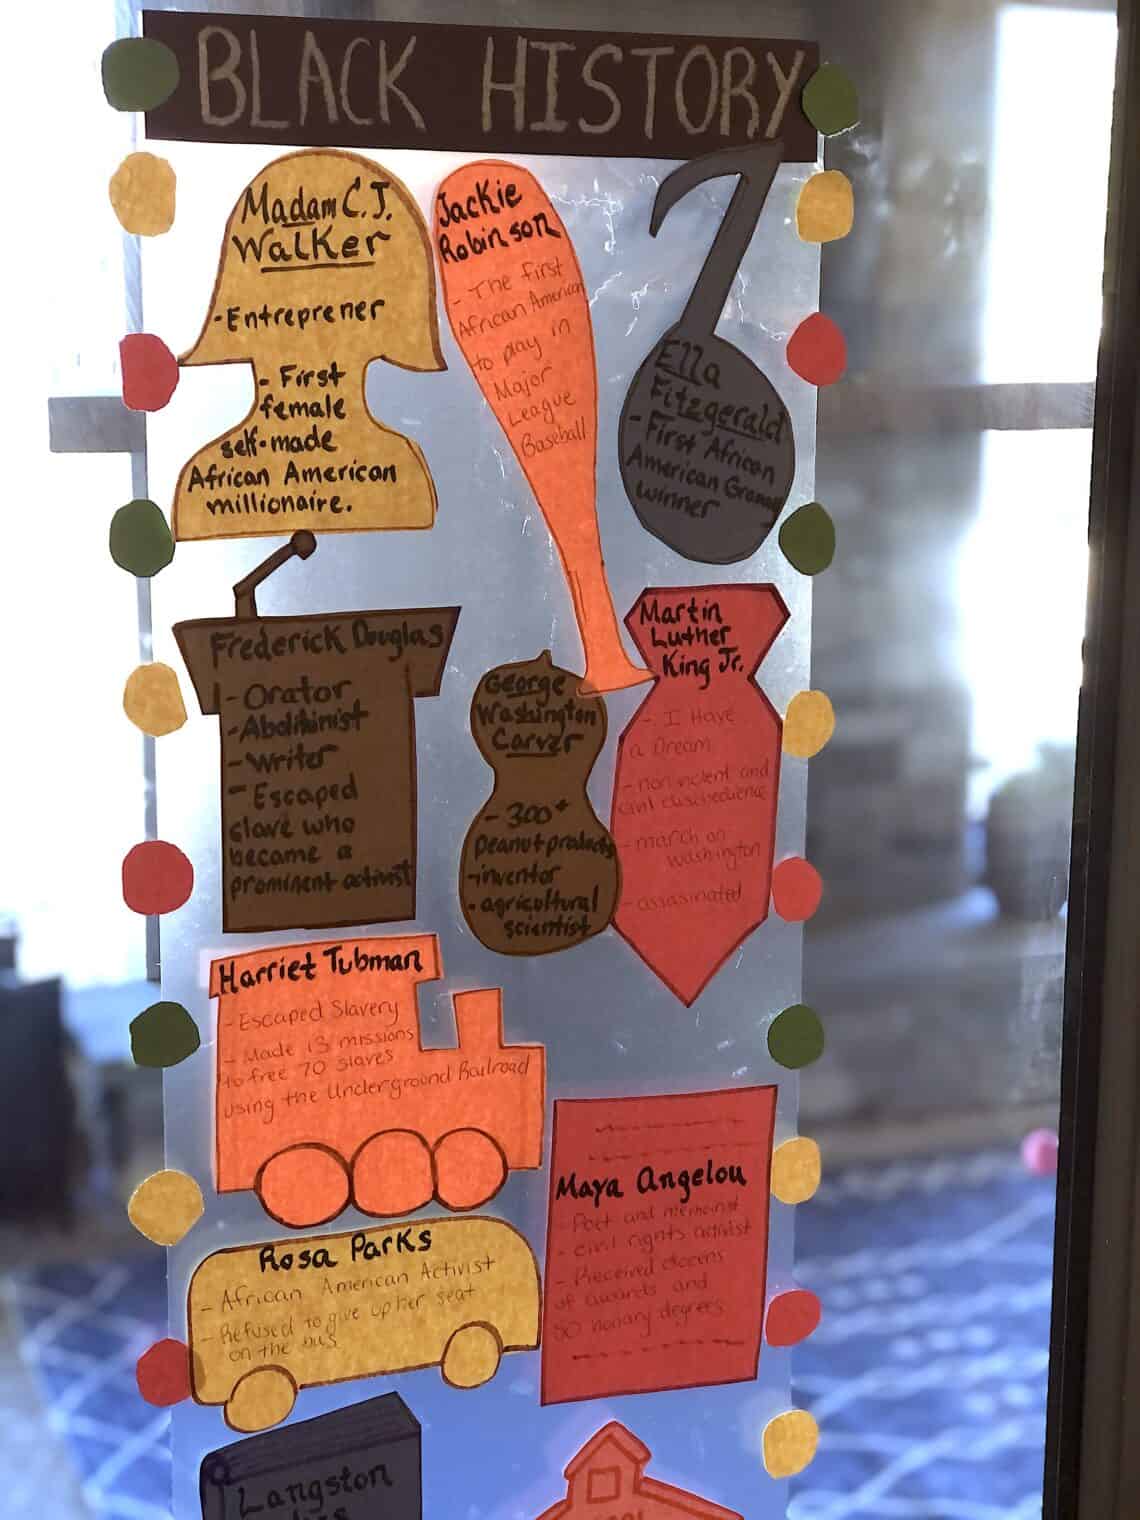 BLACK HISTORY
Madam C.J.
Walker
-Entreprener
- First
female
self-made
African American
millionaire.
Jackie
Robinson
- The first
African American
to play in
Major
League
Baseball
Ella
Fitzgerald
- First African
American Grammy
winner
Frederick Douglas
- Orator
-Abolitinist
-Writer
- Escaped
slave who
became a
prominent activist
George
Washington
Carver
- 300+
peanut products
-inventor
-agricultural
scientist
Martin
Luther
King Jr.
- I Have
a Dream
- nonviolent and
civil
- march on
washington
- assasinated
Harriet Tubman
- Escaped Slavery
- Made 13 missions
to free 70 slaves
using the Underground Railroad
Maya Angelou
- Poet and
- civil rights activist
- Received dozens
of awards and
50 honary degrees
Rosa Parks
- African American Activist
- Refused to give up her seat
on the bus
Langston